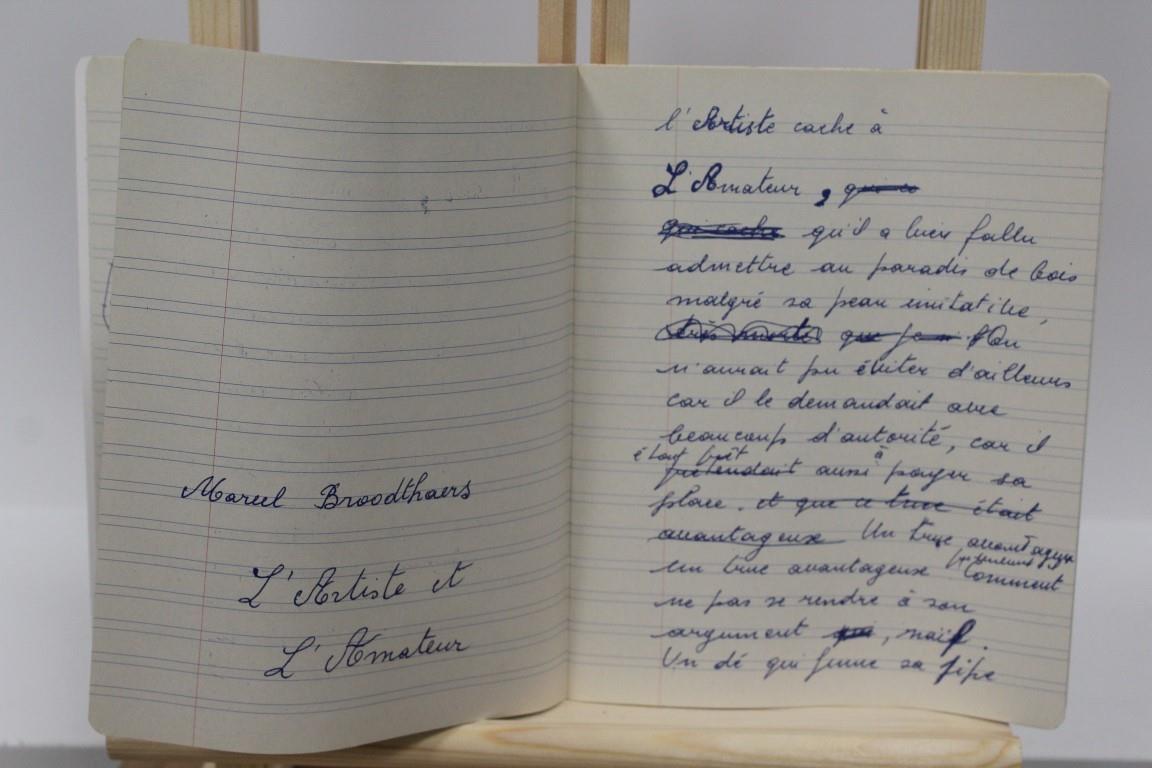 Marcel Broodthaers
L'Artiste et
L'Amateur
l'Artiste cache à
L'Amateur, qui ca
qui cache qu'il a bien fallu
admettre au paradis de bois
malgré sa peau imitative,
que On
n'aurait pu éviter d'ailleurs
car il le demandait avec
beaucoup d'autorité, car il
était prêt à
prétendait aussi payer sa
place. et que ce truc était
avantageux Un truc avantageux
un truc avantageux Comment
ne pas se rendre à son
argument qui, naïf.
Un dé qui fume sa pipe